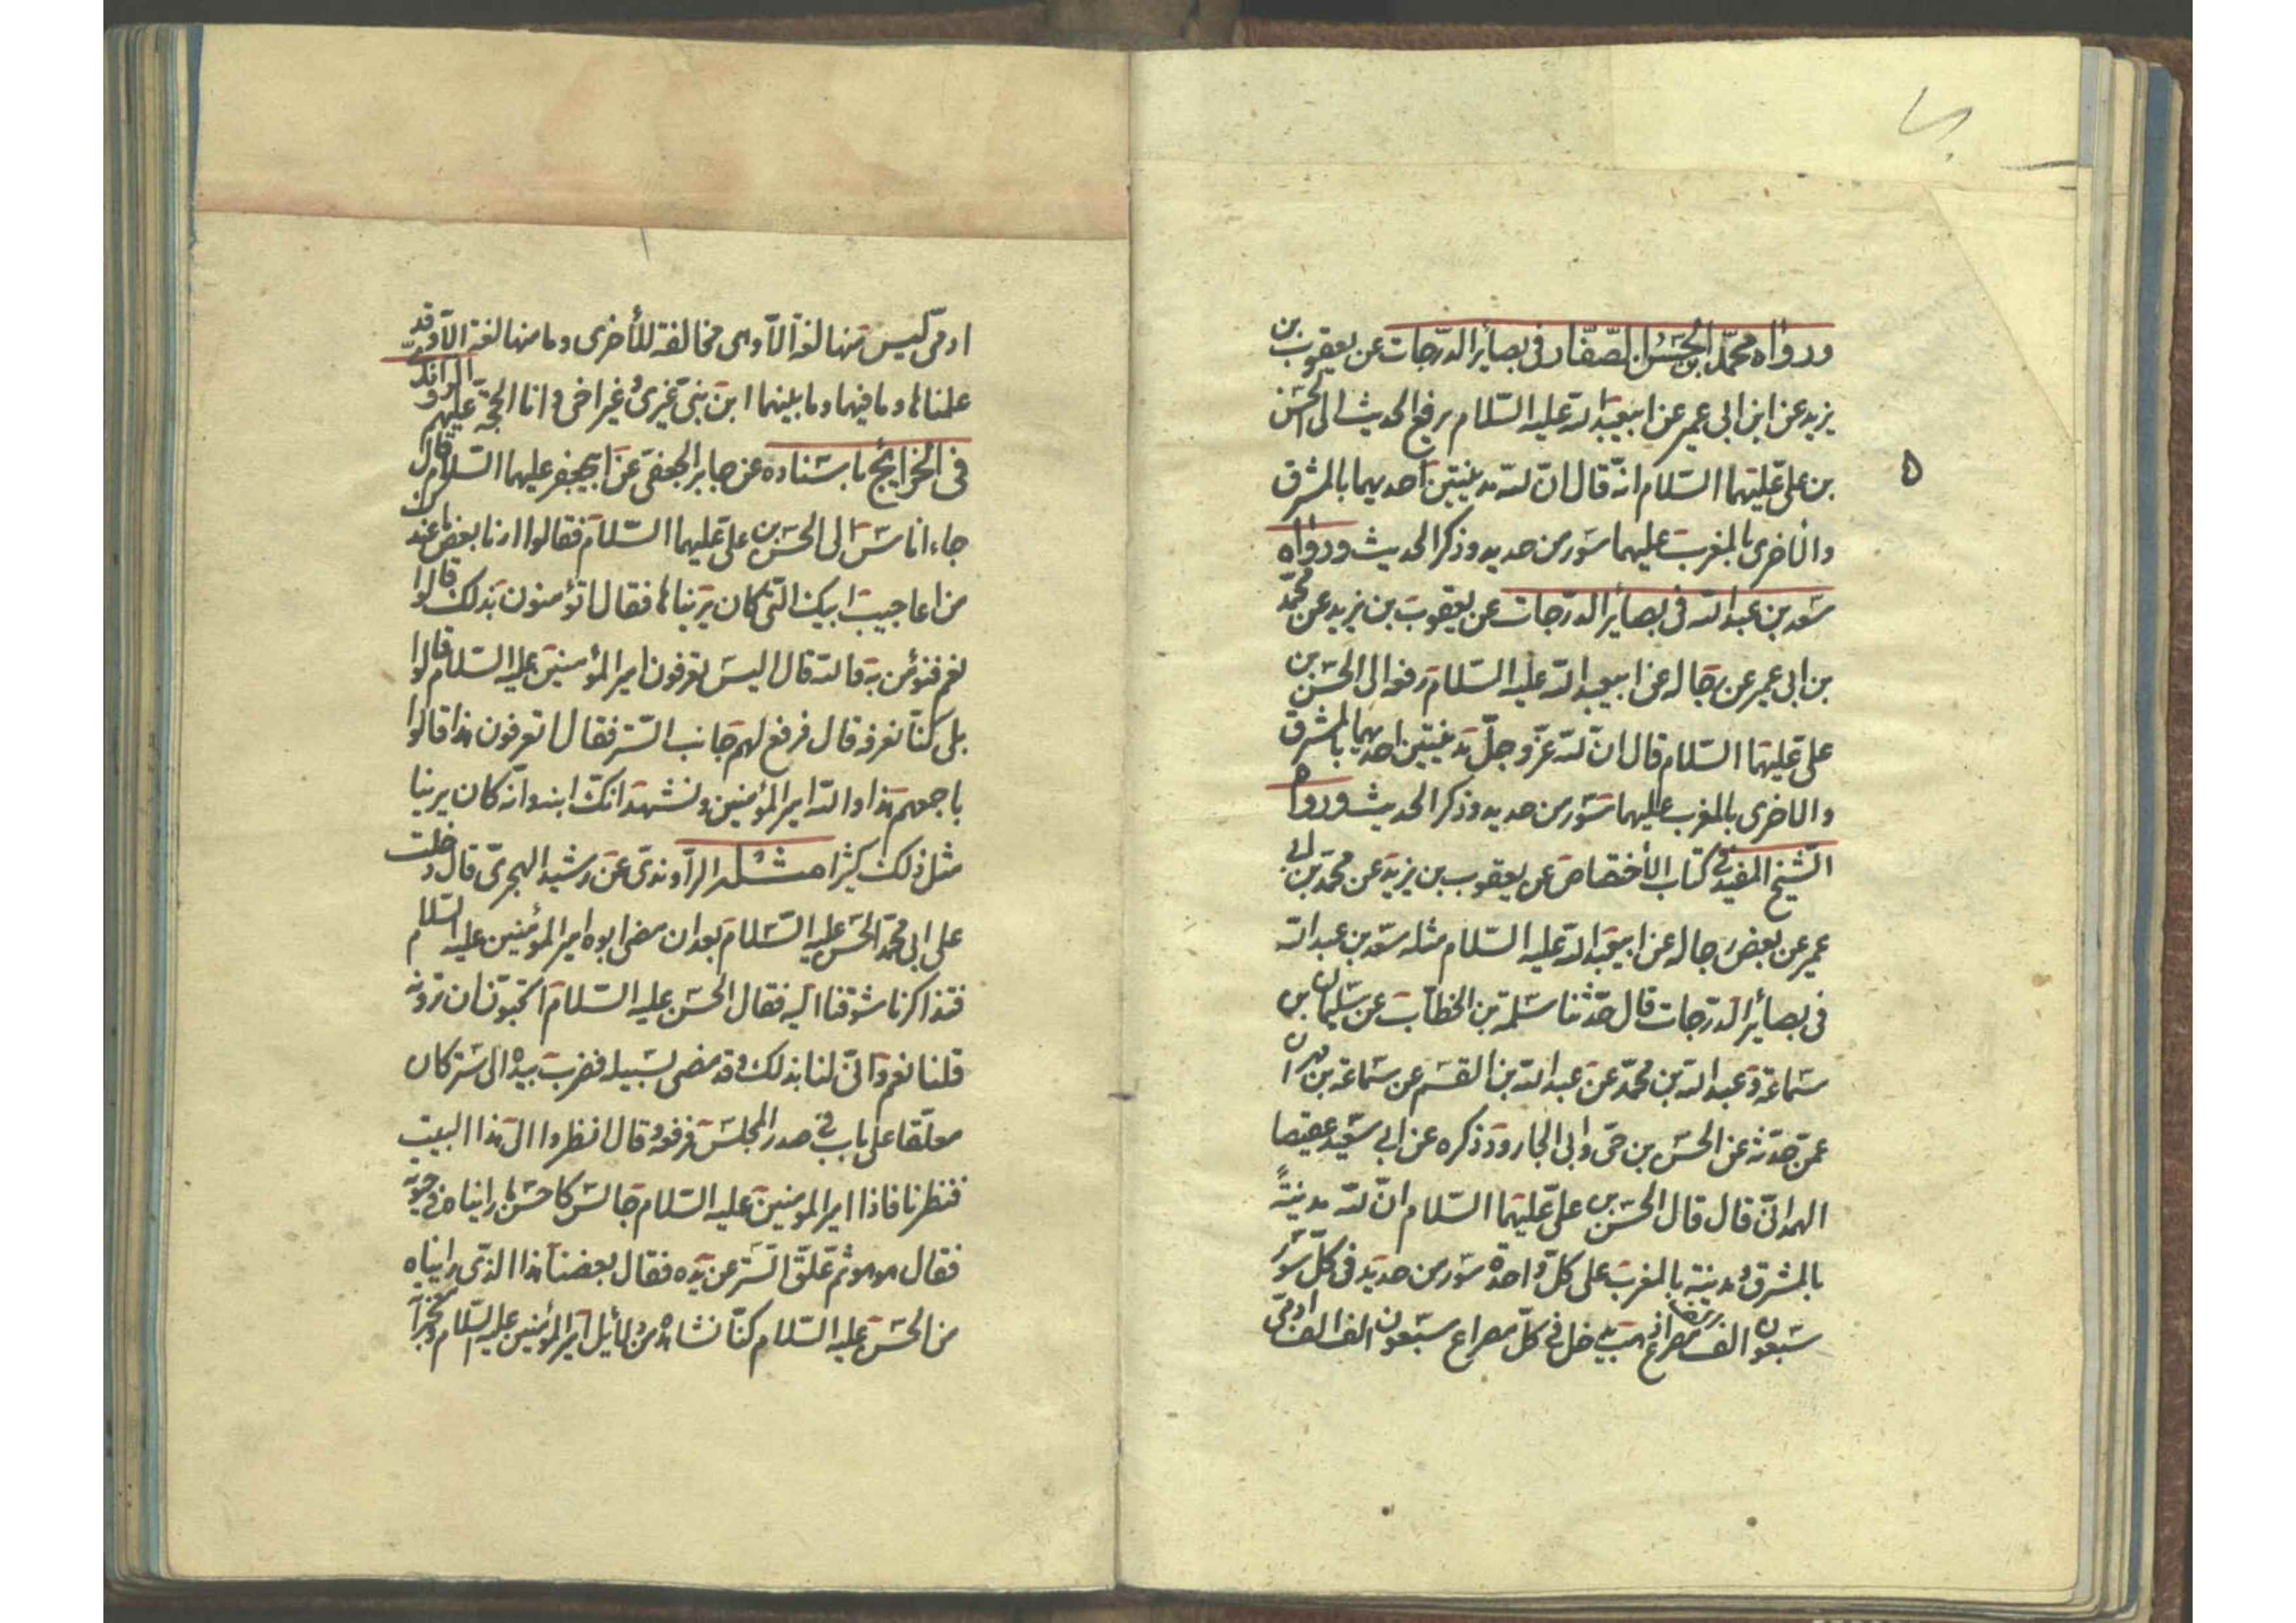 ورواه محمد بن الحسن الصفار فى بصائر الدرجات عن يعقوب بن
يزيد عن ابن ابى عمير عن ابيعبد الله عليه السلام يرفع الحديث الى الحسن
بن على عليهما السلام انه قال ان لله مدينتين احديهما بالمشرق
٥
والاخرى بالمغرب عليهما سور من حديد وذكر الحديث ورواه
سعد بن عبد الله فى بصائر الدرجات عن يعقوب بن يزيد عن محمد
بن ابى عمير عن رجاله عن ابيعبد الله عليه السلام رفعه الى الحسن بن
على عليهما السلام قال ان لله عز وجل مدينتين احديهما بالمشرق
والاخرى بالمغرب عليهما سور من حديد وذكر الحديث ورواه
الشيخ المفيد فى كتاب الأختصاص عن يعقوب بن يزيد عن محمد بن ابى
عمير عن بعض رجاله عن ابيعبد الله عليه السلام مثله سعد بن عبد الله
فى بصائر الدرجات قال حدثنا سلمة بن الخطاب عن سليمان بن
سماعة وعبد الله بن محمد عن عبد الله بن القسم عن سماعة بن مهران
عمن حدثه عن الحسن بن حى وابى الجارود ذكره عن ابى سعيد عقيصا
الهمدانى قال قال الحسن بن على عليهما السلام ان لله مدينةً
بالمشرق ومدينة بالمغرب على كل واحدة سور من حديد فى كل سور
سبعون الف مصراع يدخل فى كل مصراع سبعون الف الف
ادمى ليس منها لغة الا وهى مخالفة للأخرى وما منها لغة الا وقد
علمناها وما فيهما وما بينهما ابن بنى غيرى وغير اخى وانا الحجة عليهم الراوندى
فى الخرائج باسناده عن جابر الجعفى عن ابيجعفر عليهما السلام قال
جاء اناس الى الحسن بن على عليهما السلام فقالوا ارنا بعض ما عندك
من اعاجيب ابيك التى كان يريناها فقال اتؤمنون بذلك قالوا
نعم فنؤمن به قال اليس تعرفون امير المؤمنين عليه السلام قالوا
بلى كنا نعرفه قال فرفع لهم جانب الستر فقال اتعرفون هذا قالوا
باجمعهم هذا والله امير المؤمنين ونشهد انك ابنه وانه كان يرينا
مثل ذلك كثيرا مثله الراوندى عن رشيد الهجرى قال دخلت
على ابى محمد الحسن عليه السلام بعد ان مضى ابوه امير المؤمنين عليه السلام
فتذاكرنا شوقنا اليه فقال الحسن عليه السلام اتحبون ان ترونه
قلنا نعم وانى لنا بذلك وقد مضى لسبيله فضرب بيده الى ستر كان
معلقا على باب فى صدر المجلس فرفعه وقال انظروا الى هذا البيت
فنظرنا فاذا امير المومنين عليه السلام جالس كاحسن ما رايناه فى حيوته
فقال هو هو ثم علق الستر عن يده فقال بعضنا هذا الذى رايناه
من الحسن عليه السلام كنا نشاهد من دلائل امير المؤمنين عليه السلام